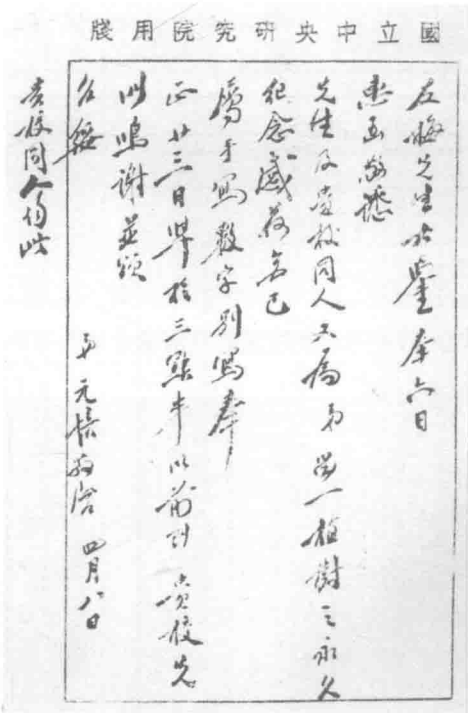 國立中央研究院用牋
先生大鑒奉六日
惠函敬悉
先生及貴校同人又為弟留一植樹之永久
紀念感荷無已
屬手寫數字別寫奉
正廿三日準於三點半以前到貴校先
此鳴謝並頌
台綏
弟元培敬啓 四月八日
貴校同人均此